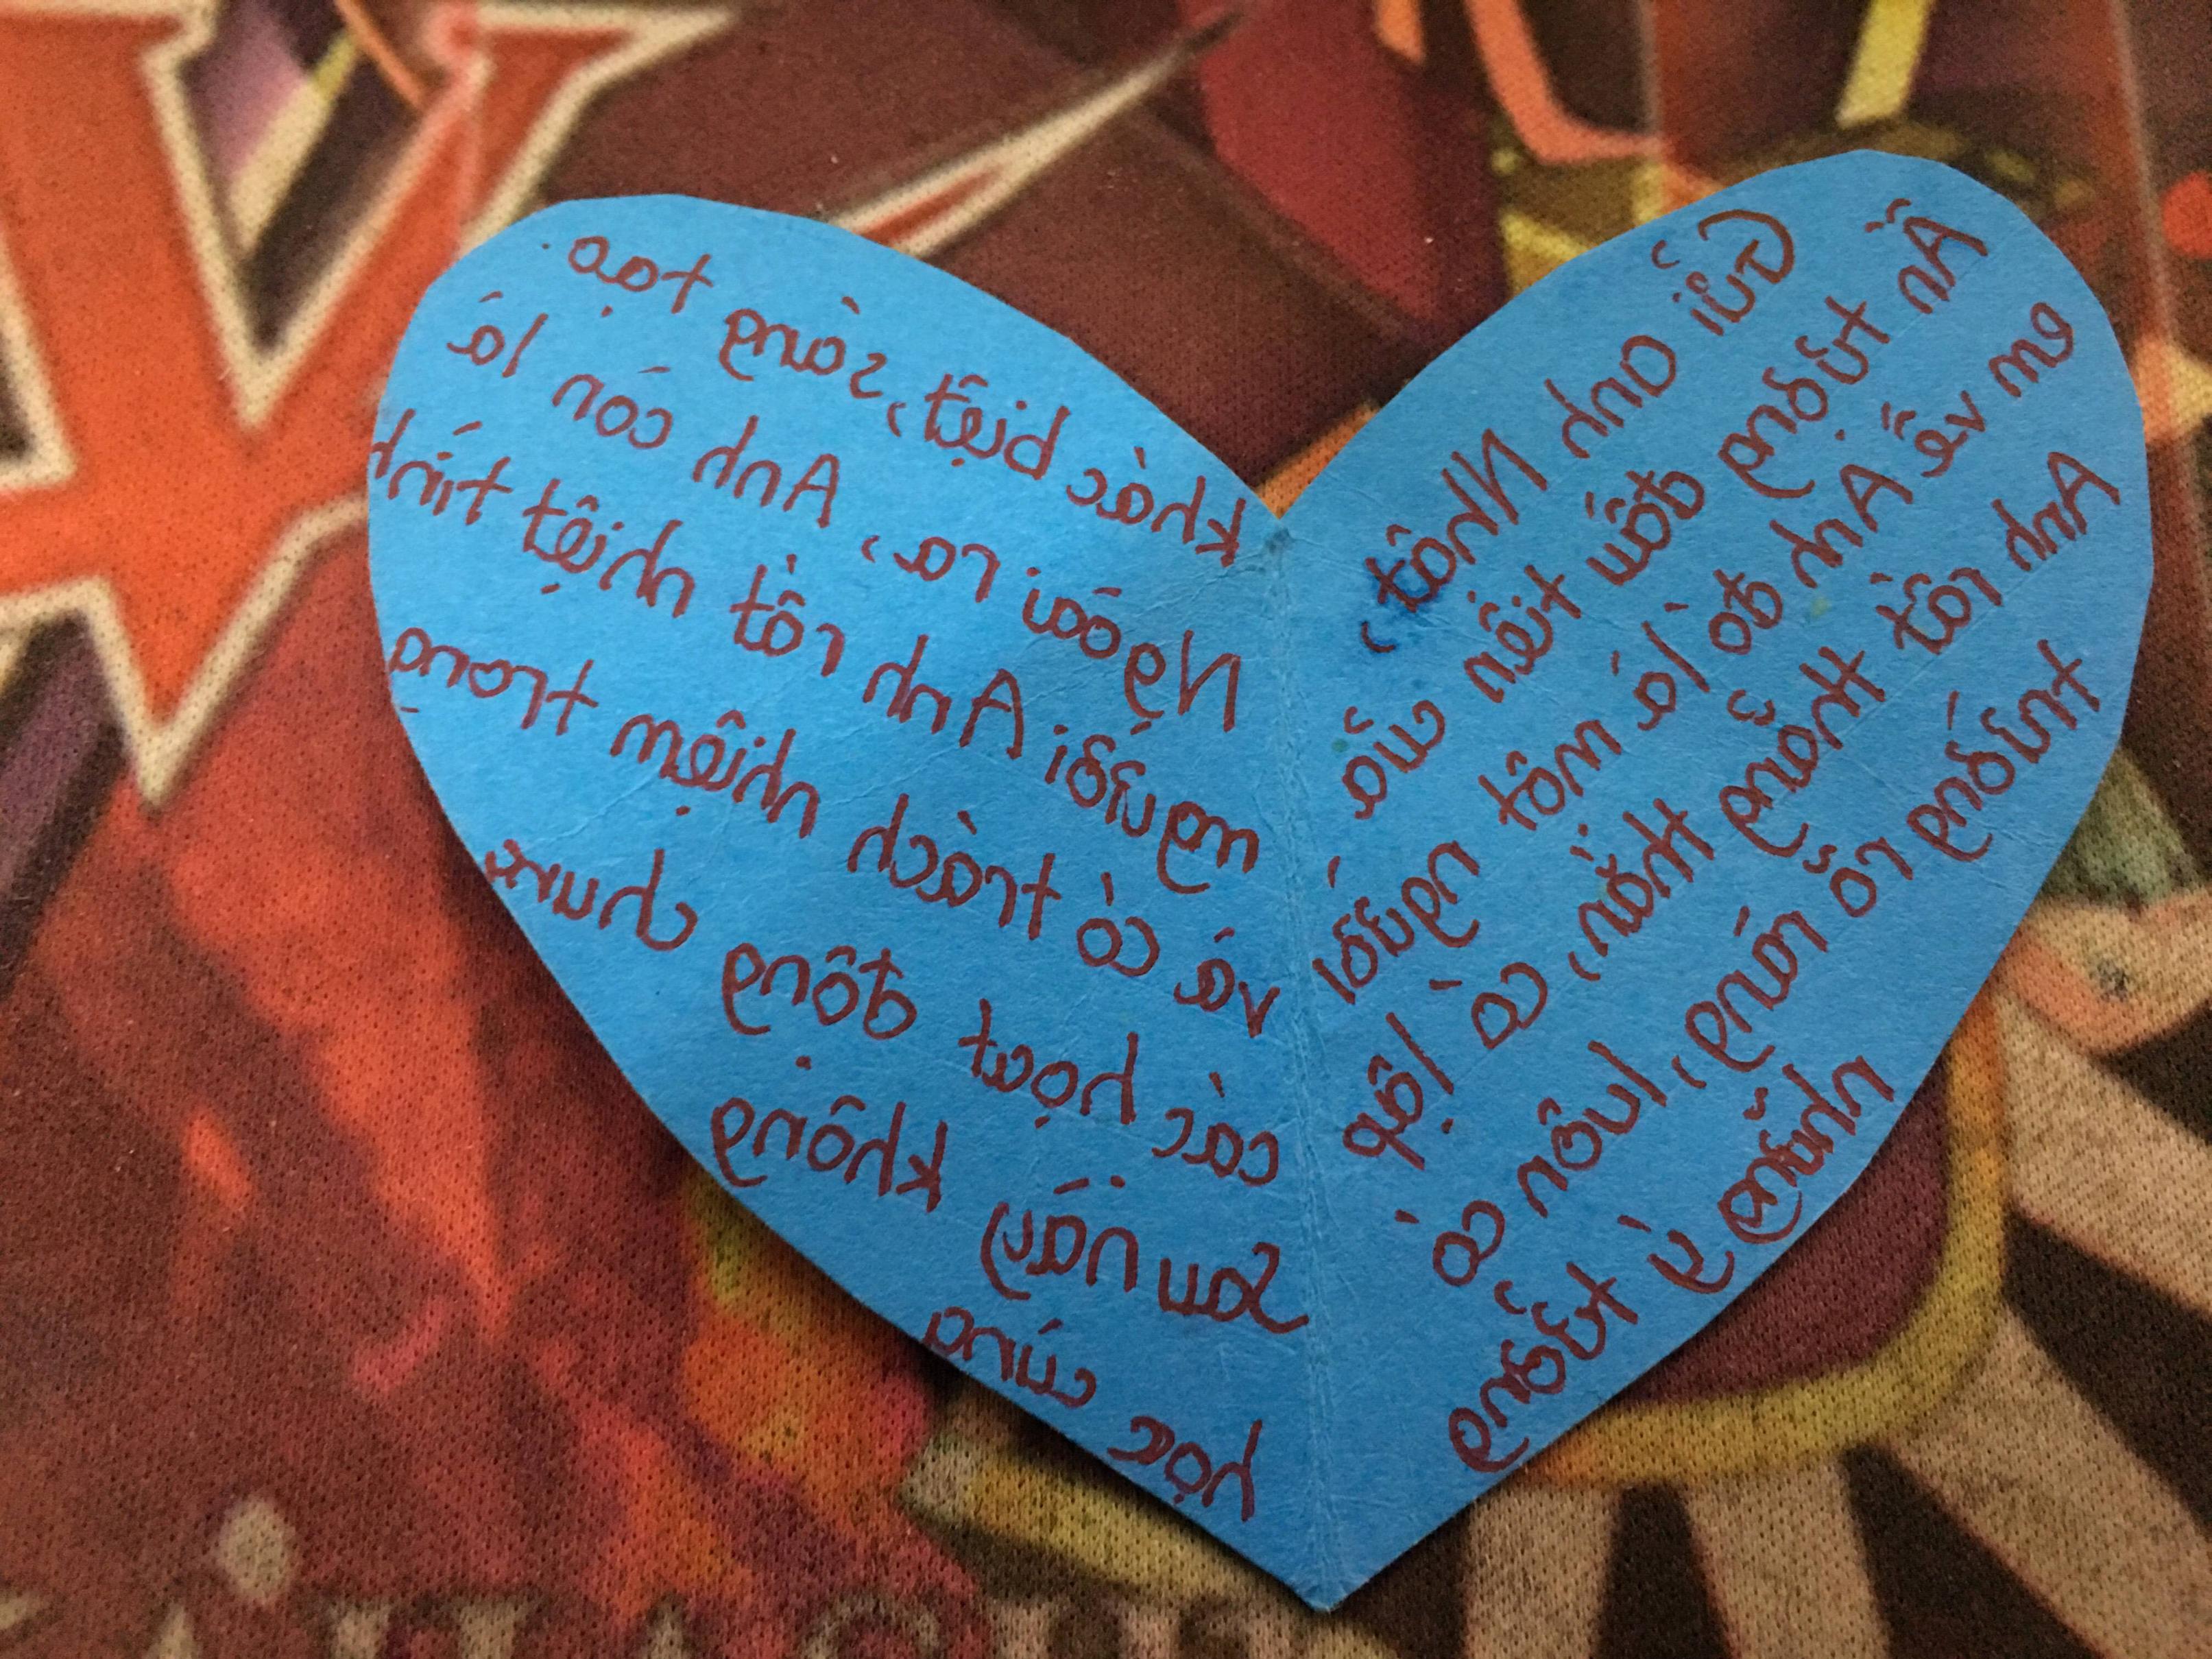 Gửi anh Nhật,
Ấn tượng đầu tiên của
em về Anh đó là một người
Anh rất thẳng thắn, có lập
trường rõ ràng, luôn có
những ý tưởng
khác biệt, sáng tạo.
Ngoài ra, Anh còn là
người Anh rất nhiệt tình
và có trách nhiệm trong
các hoạt động chung
Sau này không
học cùng